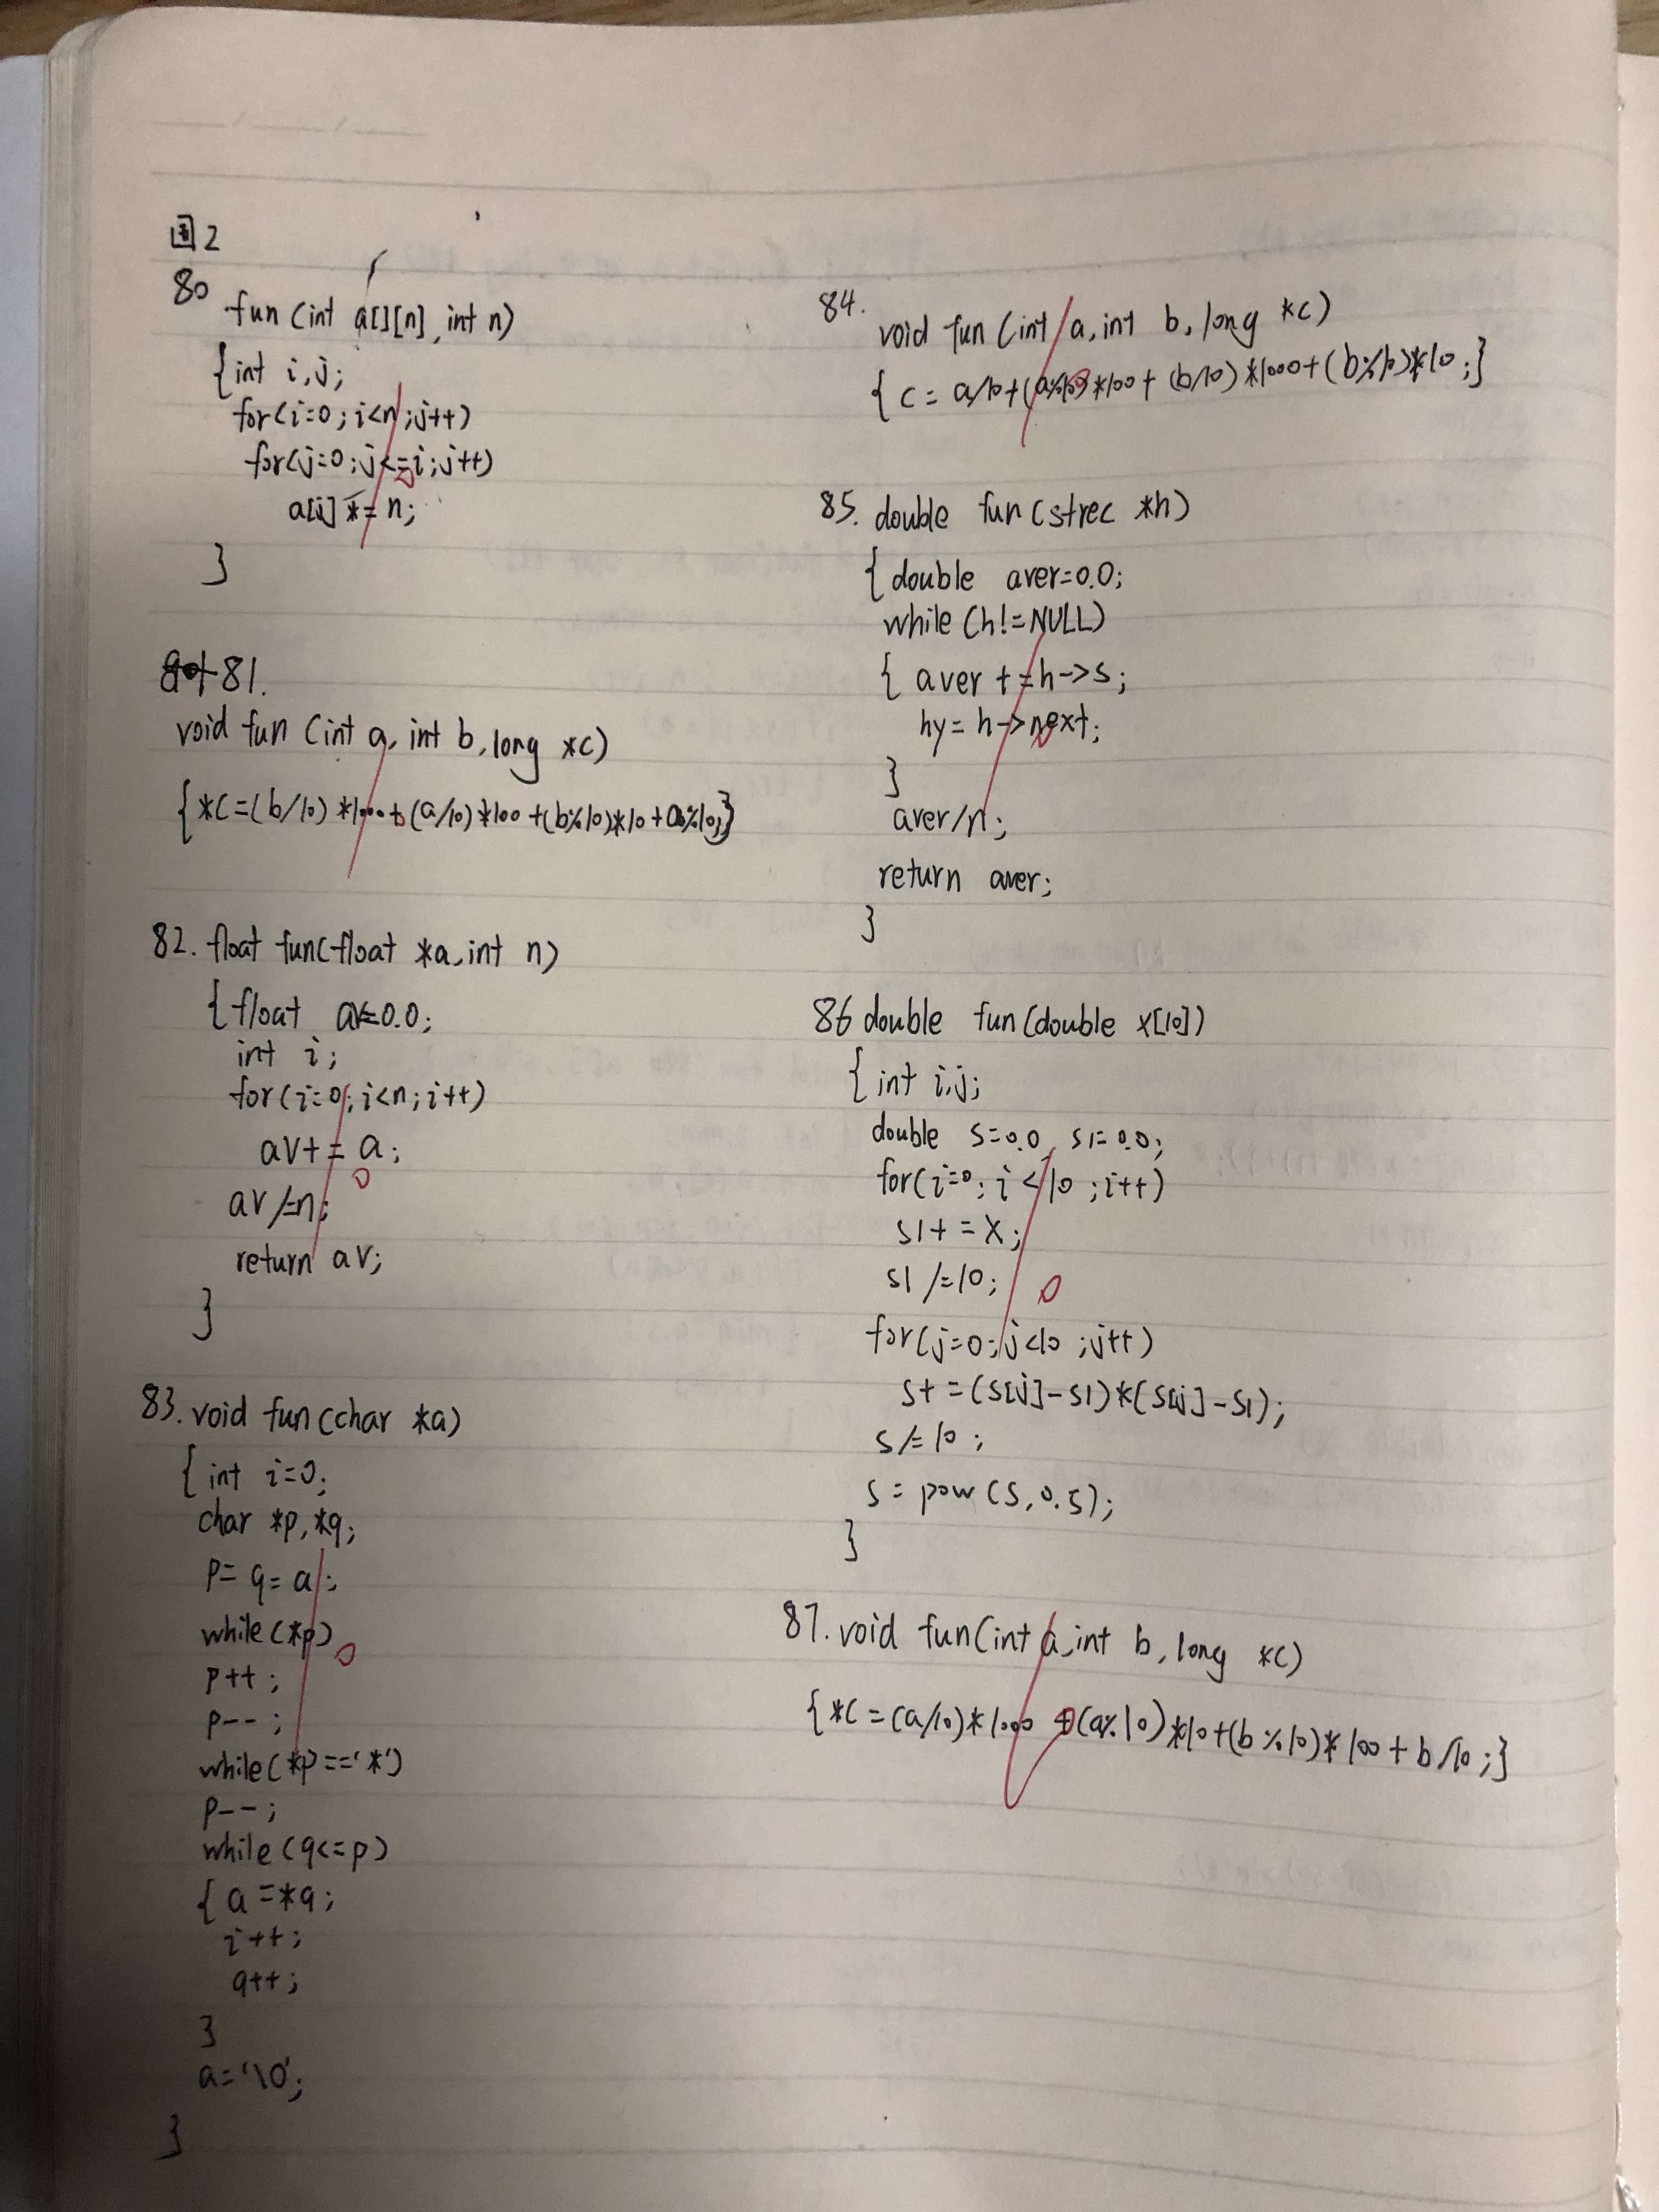 图2
80
fun (int a[][n], int n)
{int i,j;
for(i=0;i<n;j++)
for(j=0;j<=i;j++)
a[i] *= n;
}
81.
void fun (int a, int b, long *c)
{*c=(b/10)*1000+(a/10)*100+(b%10)*10+a%10;}
82. float fun(float *a, int n)
{float av=0.0;
int i;
for(i=0;i<n;i++)
av+=a;
av/=n;
return av;
}
83. void fun(char *a)
{int i=0;
char *p,*q;
p=q=a;
while(*p)
p++;
p--;
while(*p=='*')
p--;
while(q<=p)
{a=*q;
i++;
q++;
}
a='\0';
}
84.
void fun (int a, int b, long *c)
{c=a/10+(a%10)*100+(b/10)*1000+(b%10)*10;}
85. double fun(strec *h)
{double aver=0.0;
while(h!=NULL)
{aver+=h->s;
hy=h->next;
}
aver/n;
return aver;
}
86 double fun(double x[10])
{int i,j;
double s=0.0, s1=0.0;
for(i=0;i<10;i++)
s1+=x;
s1/=10;
for(j=0;j<10;j++)
s+=(s[j]-s1)*(s[j]-s1);
s/=10;
s=pow(s,0.5);
}
87. void fun(int a, int b, long *c)
{*c=(a/10)*1000+(a%10)*10+(b%10)*100+b/10;}